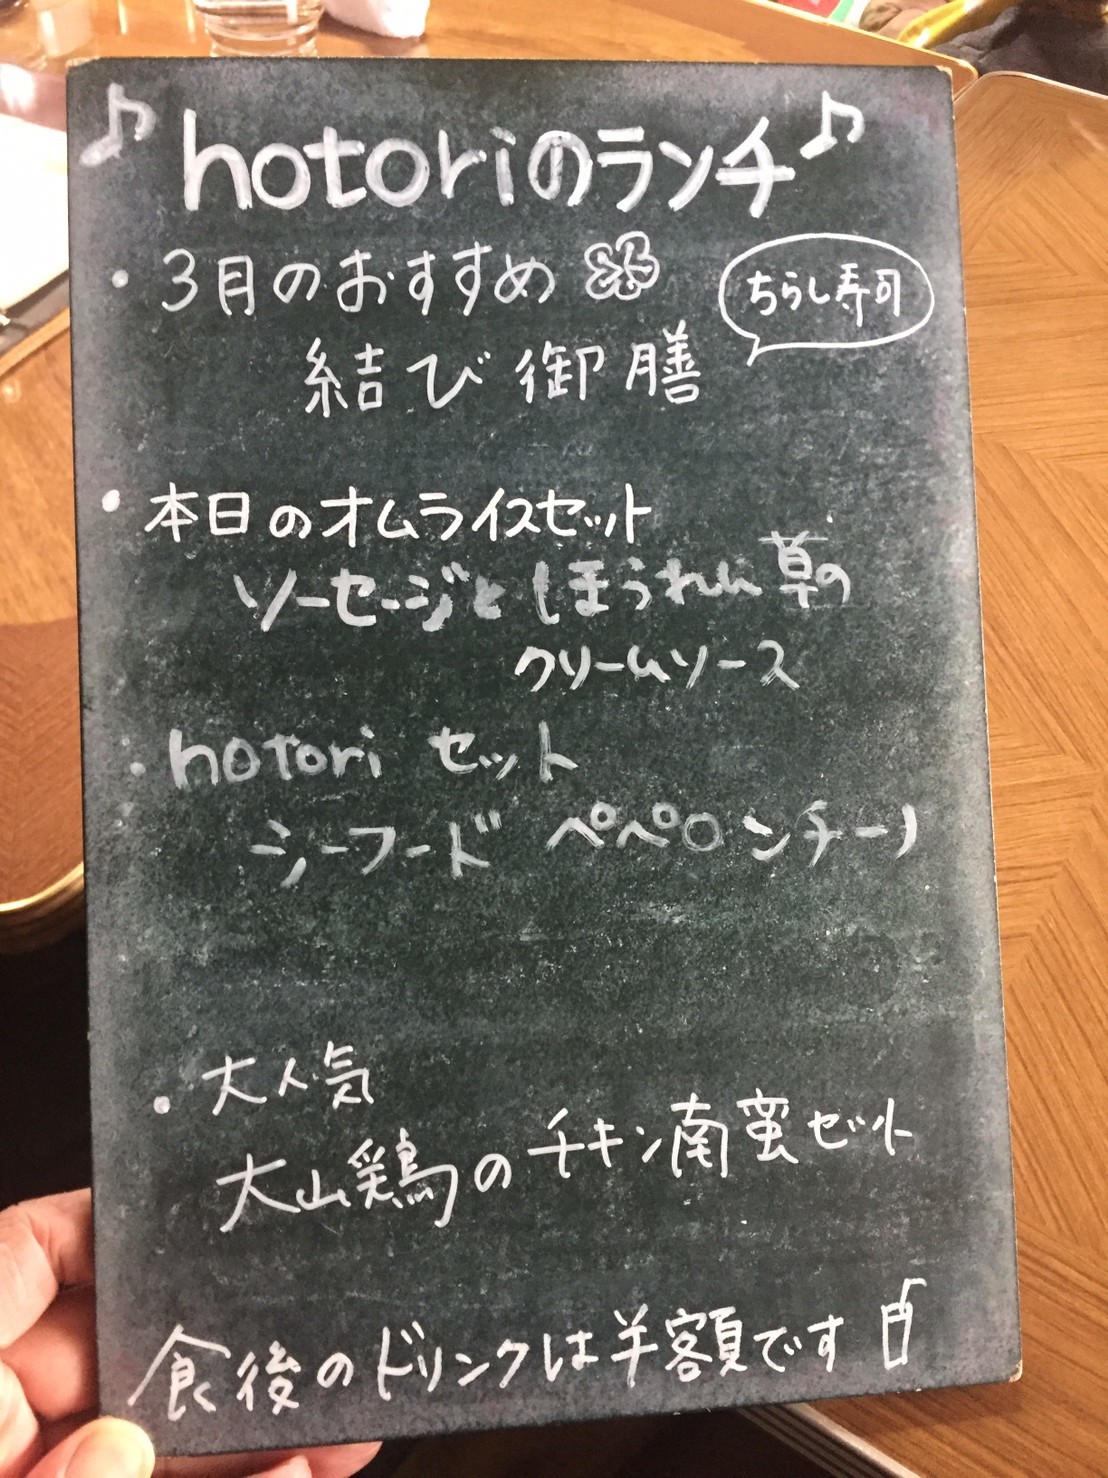 ♪hotoriのランチ♪
・3月のおすすめ
ちらし寿司
結び御膳
・本日のオムライスセット
ソーセージとほうれん草の
クリームソース
・hotori セット
シーフード ペペロンチーノ
・大人気
大山鶏のチキン南蛮セット
食後のドリンクは半額です